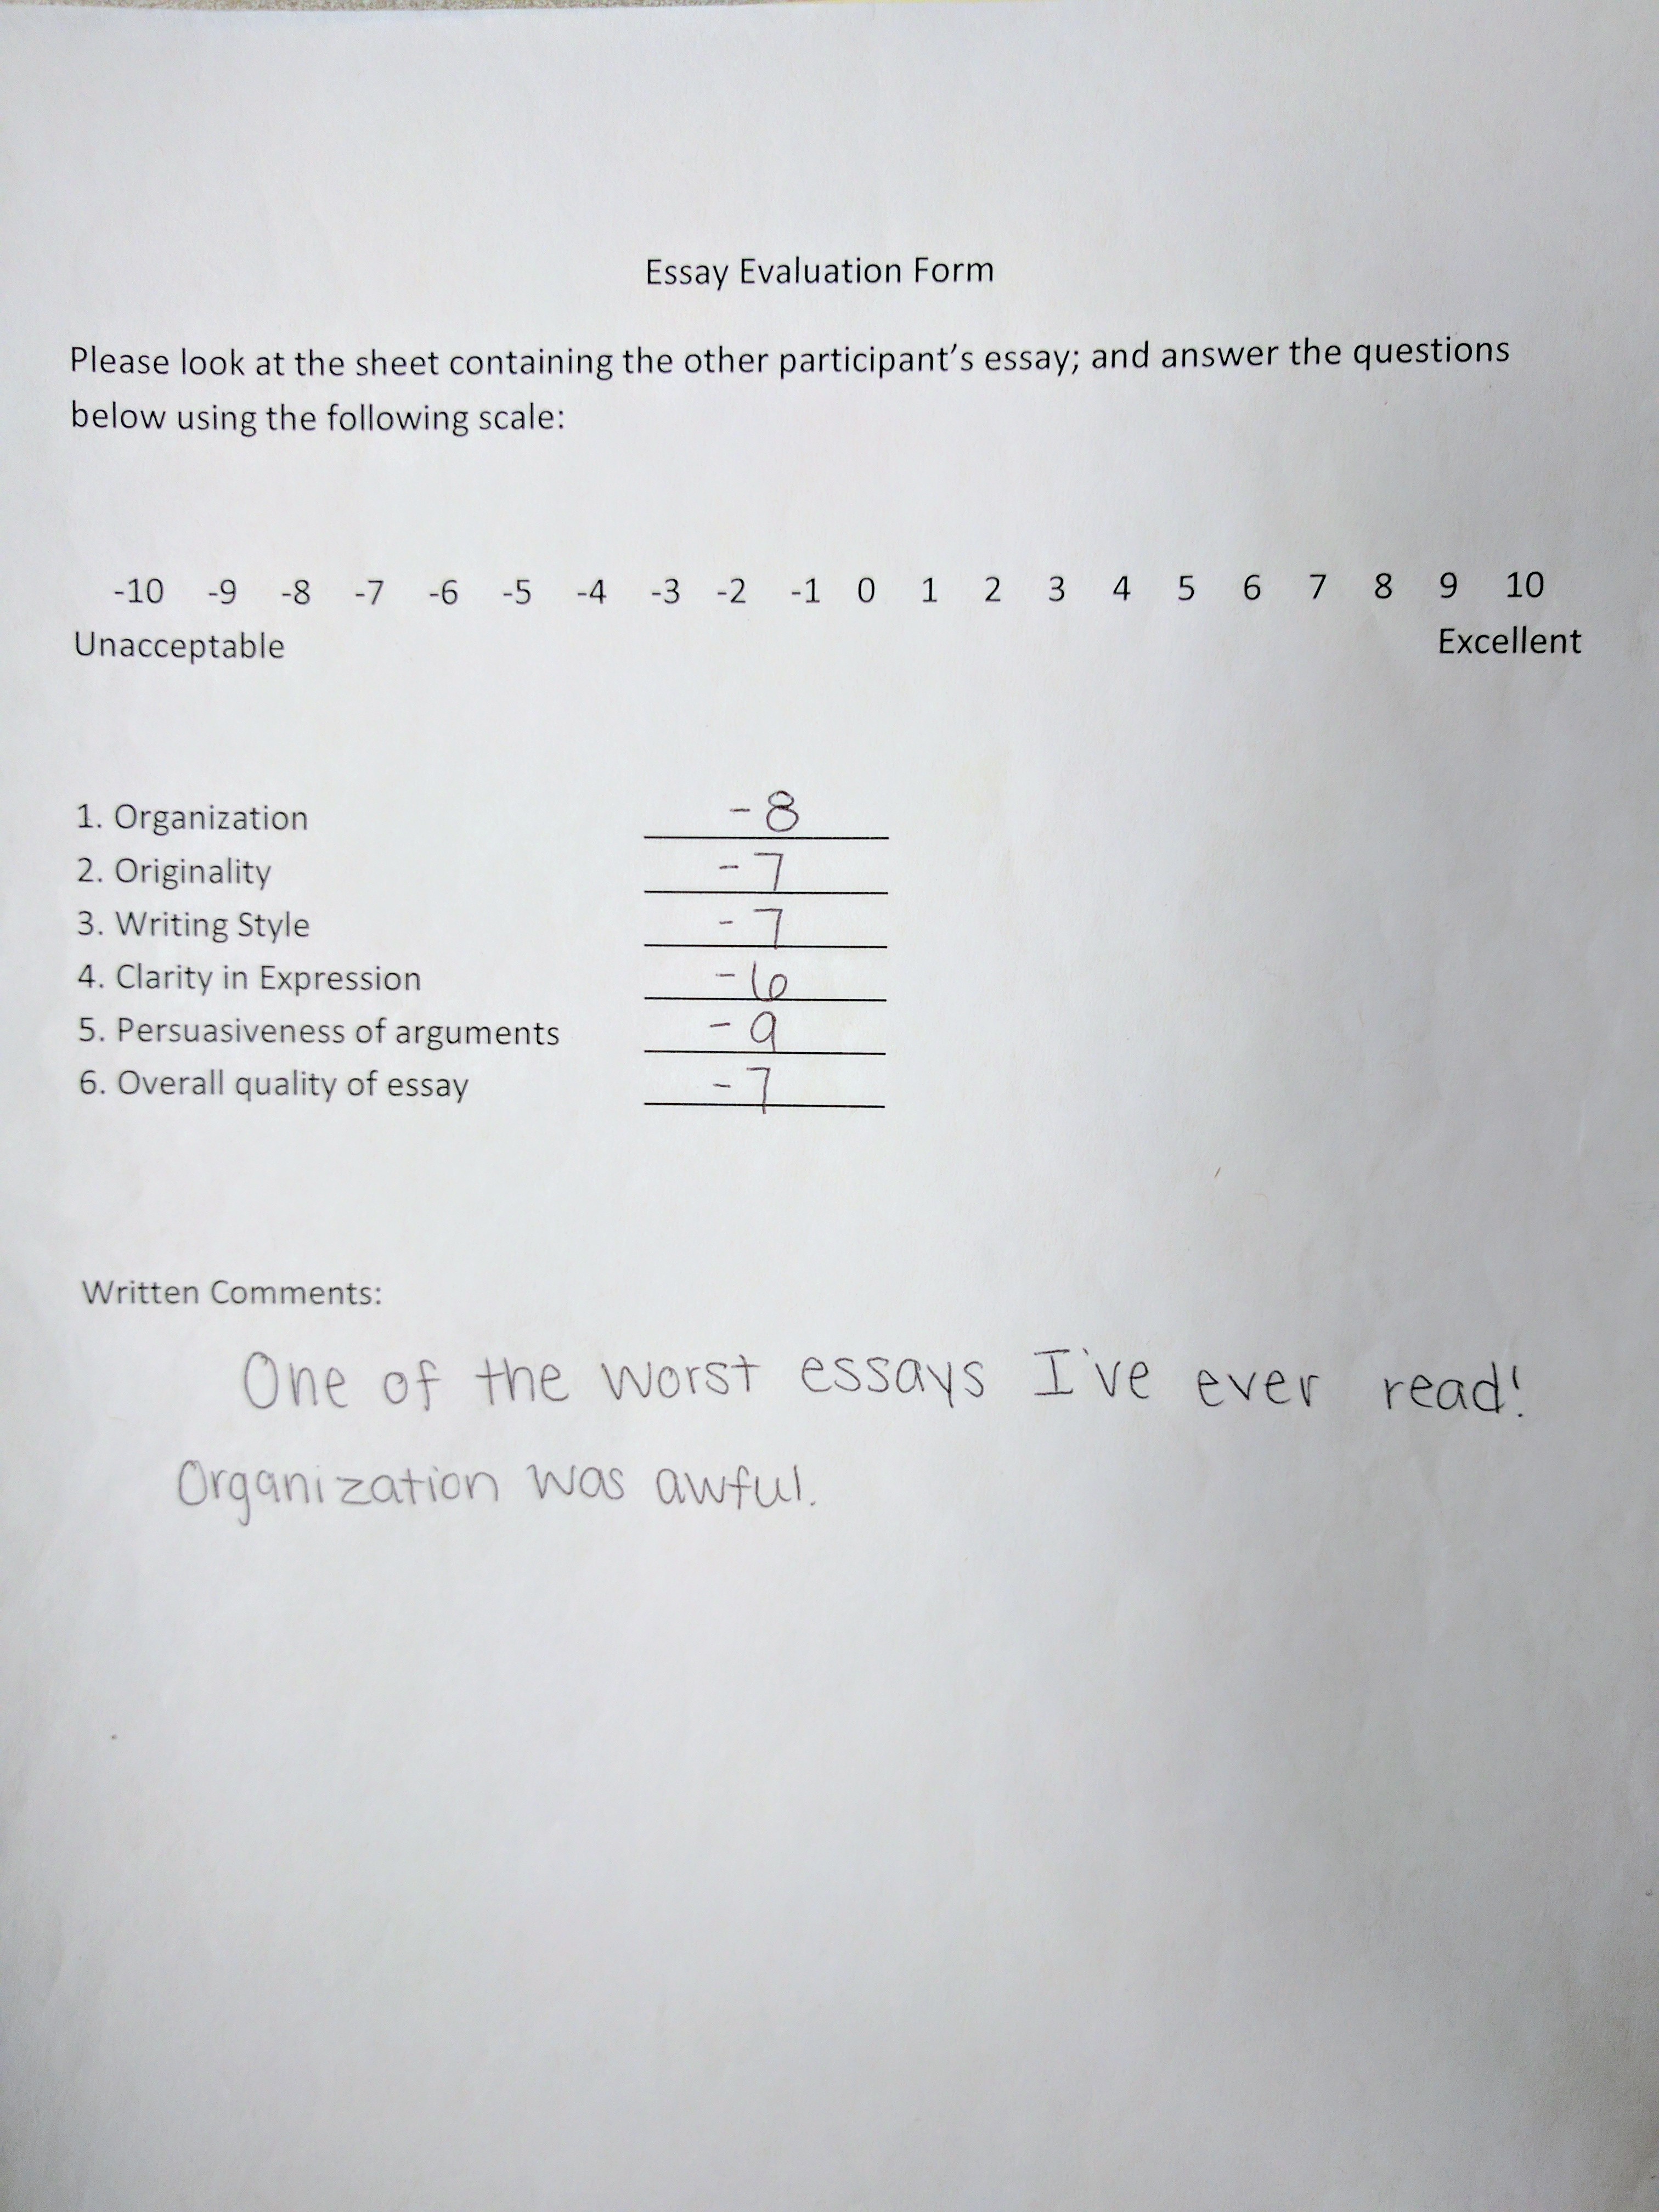 Essay Evaluation Form
Please look at the sheet containing the other participant's essay; and answer the questions
below using the following scale:
-10 -9 -8 -7 -6 -5 -4 -3 -2 -1 0 1 2 3 4 5 6 7 8 9 10
Unacceptable Excellent
1. Organization -8
2. Originality -7
3. Writing Style -7
4. Clarity in Expression -6
5. Persuasiveness of arguments -9
6. Overall quality of essay -7
Written Comments:
One of the worst essays I've ever read!
Organization was awful.